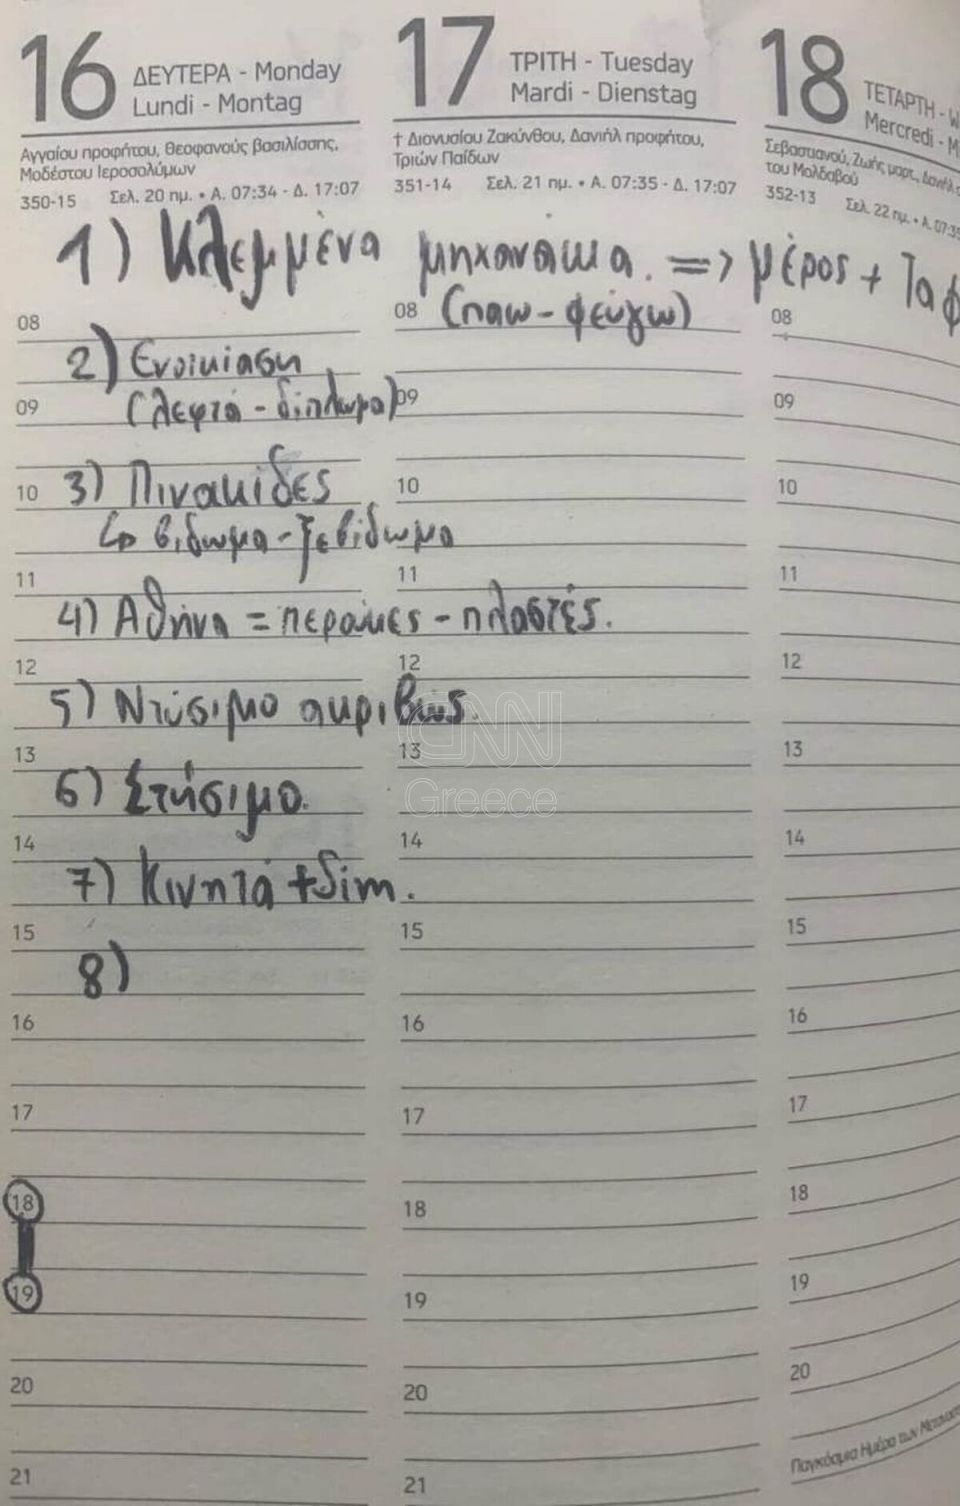 16 ΔΕΥΤΕΡΑ - Monday
Lundi - Montag
Αγγαίου προφήτου, Θεοφανούς βασιλίσσης,
Μοδέστου Ιεροσολύμων
350-15 Σελ. 20 ημ. • Α. 07:34 - Δ. 17:07
17 ΤΡΙΤΗ - Tuesday
Mardi - Dienstag
† Διονυσίου Ζακύνθου, Δανιήλ προφήτου,
Τριών Παίδων
351-14 Σελ. 21 ημ. • Α. 07:35 - Δ. 17:07
18 ΤΕΤΑΡΤΗ - W
Mercredi - M
Σεβαστιανού, Ζωής μαρτ., Δανιήλ
του Μολδαβού
352-13 Σελ. 22 ημ. • Α. 07:35
1) Κλεμμένα μηχανάκια. => μέρος + Ταφ
08 08 (παω - φεύγω) 08
2) Ενοικίαση
09 (λεφτά - δίπλωμα) 09 09
10 3) Πινακίδες 10 10
↳ βιδωμα - ξεβίδωμα
11 11 11
4) Αθήνα = περούκες - πλαστές.
12 12 12
5) Ντύσιμο ακριβώς.
CNN
13 13 13
Greece
6) Στήσιμο.
14 14 14
7) Κινητά + Sim.
15 15 15
8)
16 16 16
17 17 17
18 18 18
19 19 19
20 20 20
Παγκόσμια Ημέρα των
21 21